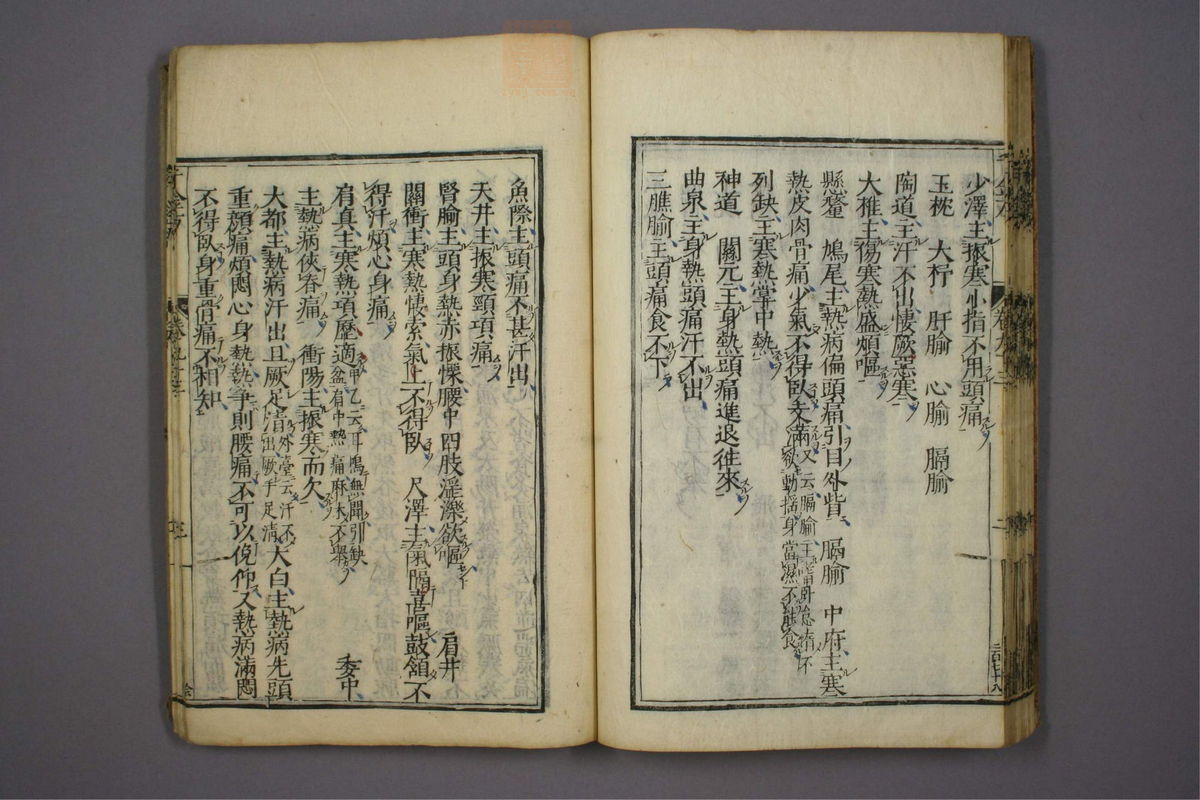 少澤主振寒小指不用頭痛
玉枕　大杼　肝腧　心腧　膈腧
陶道主汗不出悽厥惡寒
大椎主傷寒熱盛煩嘔
懸釐　鳩尾主熱病偏頭痛引目外眥　膈腧　中府主寒
熱皮肉骨痛少氣不得臥支滿
列缺主寒熱掌中熱
神道　關元主身熱頭痛進退徃來
曲泉主身熱頭痛汗不出
三膲腧主頭痛食不下
魚際主頭痛不甚汗出
天井主振寒頸項痛
腎腧主頭身熱赤振慄腰中四肢淫濼欲嘔　肩井
關衝主寒熱悽索氣上不得臥　尺澤主氣隔喜嘔鼓頷不
得汗煩心身痛　委中
肩貞主寒熱項歷適甲乙云耳鳴無聞引缺盆肩中熱痛麻木不舉
主熱病俠脊痛　衝陽主振寒而欠
大都主熱病汗出且厥足清外臺云汗不出厥手足清　大白主熱病先頭
重顏痛煩悶心身熱熱爭則腰痛不可以俛仰又熱病滿悶
不得臥身重骨痛不相知